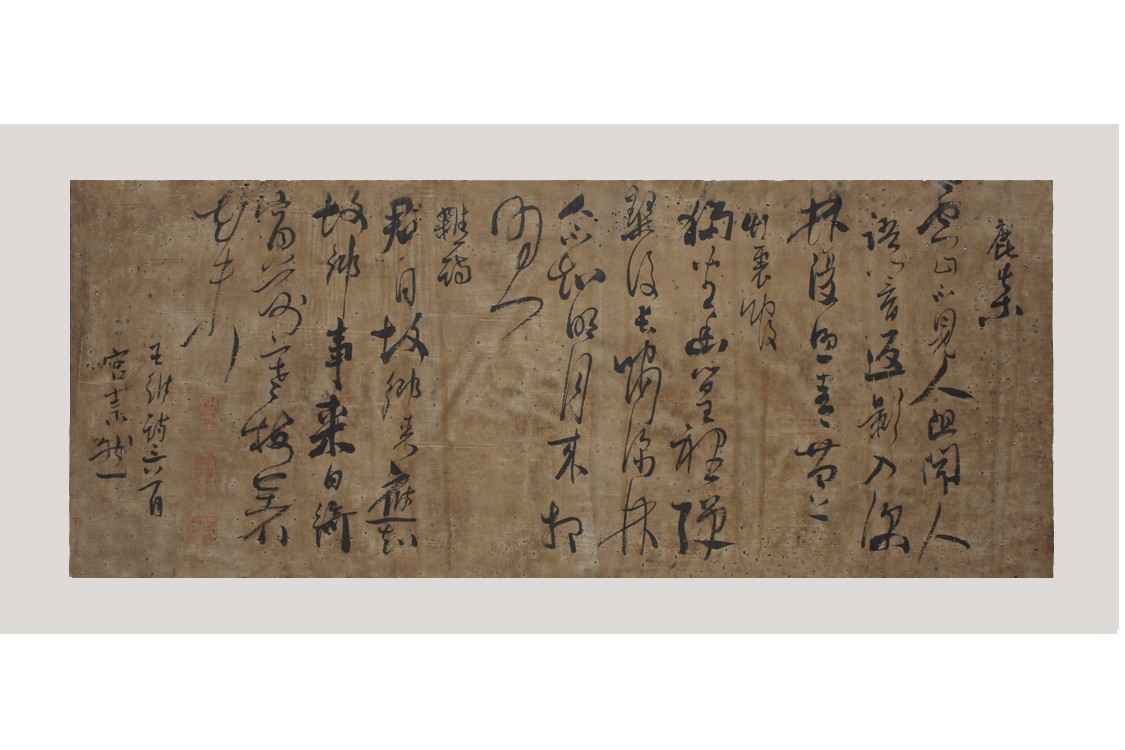 鹿柴
空山不見人但聞人
語音返影入深
林復照青苔上
竹裏館
獨坐幽篁裡彈
琴復長嘯深林
人不知明月來相
照
雜詩
君自故鄉來應知
故鄉事來日綺
窗前寒梅著
花未
王維詩三首